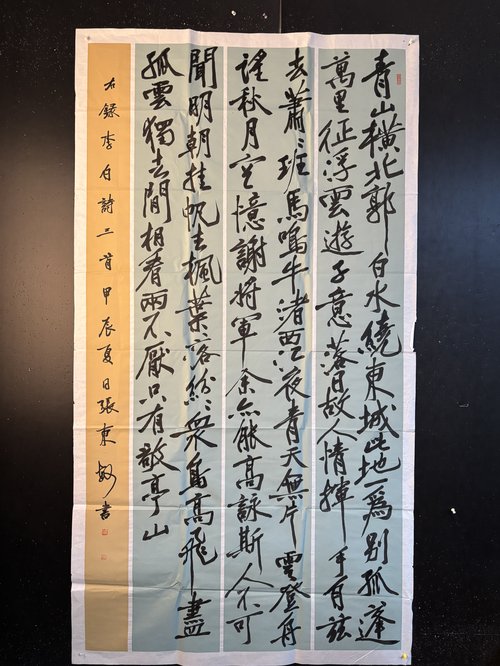 青山橫北郭白水繞東城此地一爲別孤蓬
萬里征浮雲遊子意落日故人情揮手自茲
去蕭〻班馬鳴牛渚西江夜青天無片雲登舟
望秋月空憶謝將軍余亦能高詠斯人不可
聞明朝挂帆去楓葉落紛〻衆鳥高飛盡
孤雲獨去閒相看兩不厭只有敬亭山
右錄李白詩三首甲辰夏日張東書